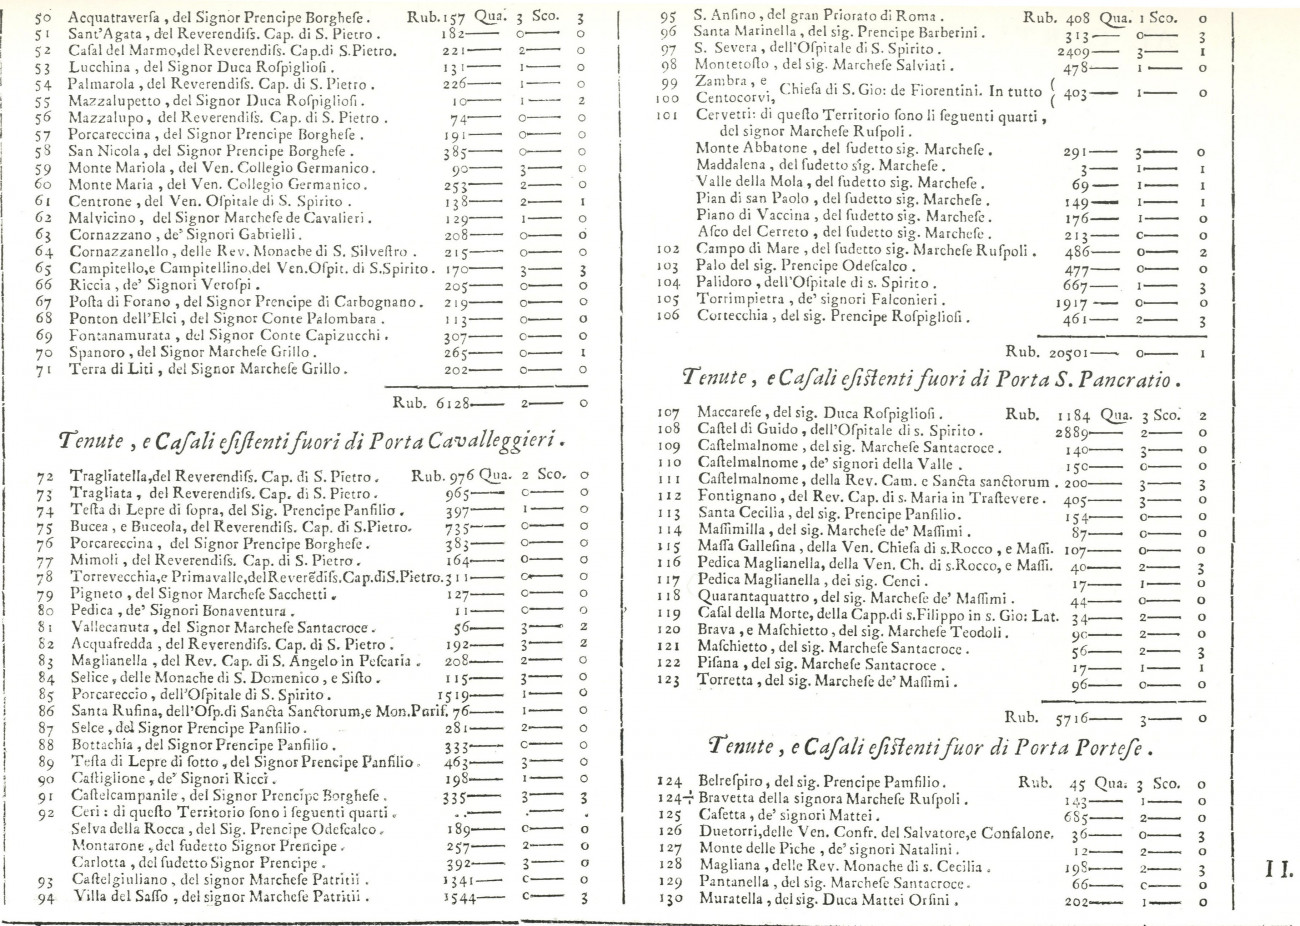 50 Acquatraversa, del Signor Prencipe Borghese. Rub. 157 Qua. 3 Sco. 3
51 Sant'Agata, del Reverendiſs. Cap. di S. Pietro. 182 — 0 — 0
52 Caſal del Marmo, del Reverendiſs. Cap. di S. Pietro. 221 — 2 — 0
53 Lucchina, del Signor Duca Roſpiglioſi. 131 — 1 — 0
54 Palmarola, del Reverendiſs. Cap. di S. Pietro. 226 — 1 — 0
55 Mazzalupetto, del Signor Duca Roſpiglioſi. 10 — 1 — 2
56 Mazzalupo, del Reverendiſs. Cap. di S. Pietro. 74 — 0 — 0
57 Porcareccina, del Signor Prencipe Borgheſe. 191 — 0 — 0
58 San Nicola, del Signor Prencipe Borgheſe. 385 — 0 — 0
59 Monte Mariola, del Ven. Collegio Germanico. 90 — 3 — 0
60 Monte Maria, del Ven. Collegio Germanico. 253 — 2 — 0
61 Centrone, del Ven. Oſpitale di S. Spirito. 138 — 2 — 1
62 Malvicino, del Signor Marcheſe de Cavalieri. 129 — 1 — 0
63 Cornazzano, de' Signori Gabrielli. 208 — 0 — 0
64 Cornazzanello, delle Rev. Monache di S. Silveſtro. 215 — 0 — 0
65 Campitello, e Campitellino, del Ven. Oſpit. di S. Spirito. 170 — 3 — 3
66 Riccia, de' Signori Veroſpi. 205 — 0 — 0
67 Poſta di Forano, del Signor Prencipe di Carbognano. 219 — 0 — 0
68 Ponton dell'Elci, del Signor Conte Palombara. 113 — 0 — 0
69 Fontanamurata, del Signor Conte Capizucchi. 307 — 0 — 0
70 Spanoro, del Signor Marcheſe Grillo. 265 — 0 — 1
71 Terra di Liti, del Signor Marcheſe Grillo. 202 — 0 — 0
Rub. 6128 — 2 — 0
Tenute, e Caſali eſiſtenti fuori di Porta Cavalleggieri.
72 Tragliatella, del Reverendiſs. Cap. di S. Pietro. Rub. 976 Qua. 2 Sco. 0
73 Tragliata, del Reverendiſs. Cap. di S. Pietro. 965 — 0 — 0
74 Teſta di Lepre di ſopra, del Sig. Prencipe Panfilio. 397 — 1 — 0
75 Bucea, e Buceola, del Reverendiſs. Cap. di S. Pietro. 735 — 0 — 0
76 Porcareccina, del Signor Prencipe Borgheſe. 383 — 0 — 0
77 Mimoli, del Reverendiſs. Cap. di S. Pietro. 164 — 0 — 0
78 Torrevecchia, e Primavalle, del Reverēdiſs. Cap. di S. Pietro. 311 — 0 — 0
79 Pigneto, del Signor Marcheſe Sacchetti. 127 — 0 — 0
80 Pedica, de' Signori Bonaventura. 11 — 0 — 0
81 Vallecanuta, del Signor Marcheſe Santacroce. 56 — 3 — 2
82 Acquafredda, del Reverendiſs. Cap. di S. Pietro. 192 — 3 — 2
83 Maglianella, del Rev. Cap. di S. Angelo in Peſcaria. 208 — 2 — 0
84 Selice, delle Monache di S. Domenico, e Siſto. 115 — 3 — 0
85 Porcareccio, dell'Oſpitale di S. Spirito. 1519 — 1 — 0
86 Santa Rufina, dell'Oſp. di Sancta Sanctorum, e Mon. Pariſ. 76 — 1 — 0
87 Selce, del Signor Prencipe Panfilio. 281 — 2 — 0
88 Bottachia, del Signor Prencipe Panfilio. 333 — 0 — 0
89 Teſta di Lepre di ſotto, del Signor Prencipe Panfilio. 463 — 3 — 0
90 Caſtiglione, de' Signori Ricci. 198 — 1 — 0
91 Caſtelcampanile, del Signor Prencipe Borgheſe. 335 — 3 — 3
92 Ceri: di queſto Territorio ſono i ſeguenti quarti.
Selva della Rocca, del Sig. Prencipe Odeſcalco. 189 — 0 — 0
Montarone, del ſudetto Signor Prencipe. 257 — 2 — 0
Carlotta, del ſudetto Signor Prencipe. 392 — 3 — 0
93 Caſtelgiuliano, del signor Marcheſe Patritii. 1341 — 0 — 0
94 Villa del Saſſo, del signor Marcheſe Patritii. 1544 — 0 — 3
95 S. Anſino, del gran Priorato di Roma. Rub. 408 Qua. 1 Sco. 0
96 Santa Marinella, del sig. Prencipe Barberini. 313 — 0 — 3
97 S. Severa, dell'Oſpitale di S. Spirito. 2409 — 3 — 1
98 Montetoſto, del sig. Marcheſe Salviati. 478 — 1 — 0
99 Zambra, e
100 Centocorvi, Chieſa di S. Gio: de Fiorentini. In tutto ( 403 — 1 — 0
101 Cervetri: di queſto Territorio ſono li ſeguenti quarti,
del signor Marcheſe Ruſpoli.
Monte Abbatone, del ſudetto sig. Marcheſe. 291 — 3 — 0
Maddalena, del ſudetto sig. Marcheſe. 3 — 1 — 1
Valle della Mola, del ſudetto sig. Marcheſe. 69 — 1 — 1
Pian di san Paolo, del ſudetto sig. Marcheſe. 149 — 1 — 1
Piano di Vaccina, del ſudetto sig. Marcheſe. 176 — 1 — 0
Aſco del Cerreto, del ſudetto sig. Marcheſe. 213 — 0 — 0
102 Campo di Mare, del ſudetto sig. Marcheſe Ruſpoli. 486 — 0 — 2
103 Palo del sig. Prencipe Odeſcalco. 477 — 0 — 0
104 Palidoro, dell'Oſpitale di s. Spirito. 667 — 1 — 3
105 Torrimpietra, de' signori Falconieri. 1917 — 0 — 0
106 Cortecchia, del sig. Prencipe Roſpiglioſi. 461 — 2 — 3
Rub. 20501 — 0 — 1
Tenute, e Caſali eſiſtenti fuori di Porta S. Pancratio.
107 Maccareſe, del sig. Duca Roſpiglioſi. Rub. 1184 Qua. 3 Sco. 2
108 Caſtel di Guido, dell'Oſpitale di s. Spirito. 2889 — 2 — 0
109 Caſtelmalnome, del sig. Marcheſe Santacroce. 140 — 3 — 0
110 Caſtelmalnome, de' signori della Valle. 150 — 0 — 0
111 Caſtelmalnome, della Rev. Cam. e Sancta sanctorum. 200 — 3 — 3
112 Fontignano, del Rev. Cap. di s. Maria in Traſtevere. 405 — 3 — 0
113 Santa Cecilia, del sig. Prencipe Panfilio. 154 — 0 — 0
114 Maſſimilla, del sig. Marcheſe de' Maſſimi. 87 — 0 — 0
115 Maſſa Galleſina, della Ven. Chieſa di s. Rocco, e Maſſi. 107 — 0 — 0
116 Pedica Maglianella, della Ven. Ch. di s. Rocco, e Maſſi. 40 — 2 — 3
117 Pedica Maglianella, dei sig. Cenci. 17 — 1 — 0
118 Quarantaquattro, del sig. Marcheſe de' Maſſimi. 44 — 0 — 0
119 Caſal della Morte, della Capp. di s. Filippo in s. Gio: Lat. 34 — 2 — 0
120 Brava, e Maſchietto, del sig. Marcheſe Teodoli. 90 — 2 — 0
121 Maſchietto, del sig. Marcheſe Santacroce. 56 — 2 — 3
122 Piſana, del sig. Marcheſe Santacroce. 17 — 1 — 1
123 Torretta, del sig. Marcheſe de' Maſſimi. 96 — 0 — 0
Rub. 5716 — 3 — 0
Tenute, e Caſali eſiſtenti fuor di Porta Porteſe.
124 Belreſpiro, del sig. Prencipe Pamfilio. Rub. 45 Qua. 3 Sco. 0
124÷ Bravetta della signora Marcheſe Ruſpoli. 143 — 1 — 0
125 Cafetta, de' signori Mattei. 685 — 2 — 0
126 Duetorri, delle Ven. Confr. del Salvatore, e Confalone. 36 — 0 — 3
127 Monte delle Piche, de' signori Natalini. 12 — 2 — 0
128 Magliana, delle Rev. Monache di s. Cecilia. 198 — 2 — 3
129 Pantanella, del sig. Marcheſe Santacroce. 66 — 0 — 0
130 Muratella, del sig. Duca Mattei Orſini. 202 — 1 — 0
II.